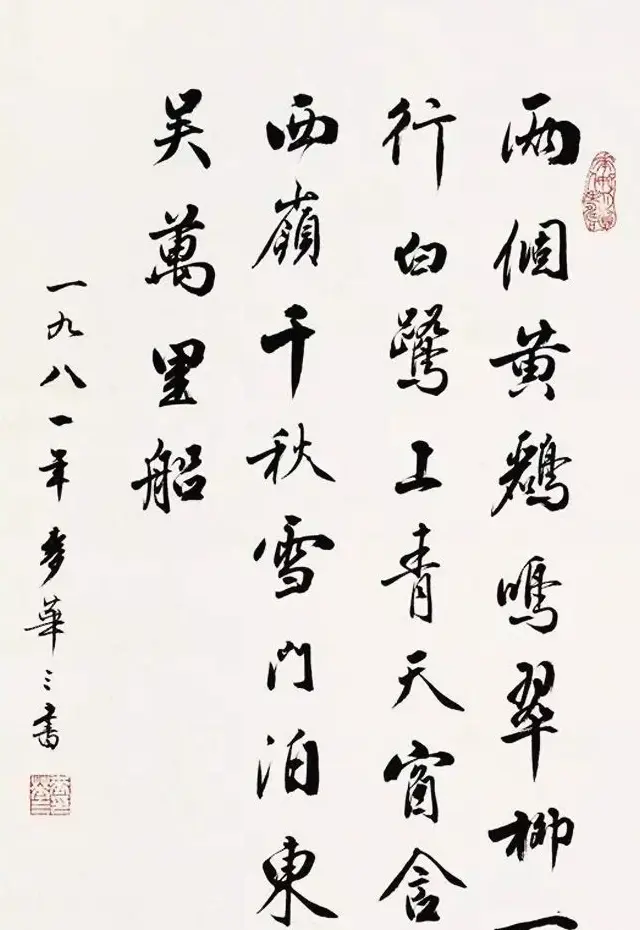 兩個黄鸝鳴翠柳一
行白鷺上青天窗含
西嶺千秋雪門泊東
吳萬里船
一九八一年麥華三書